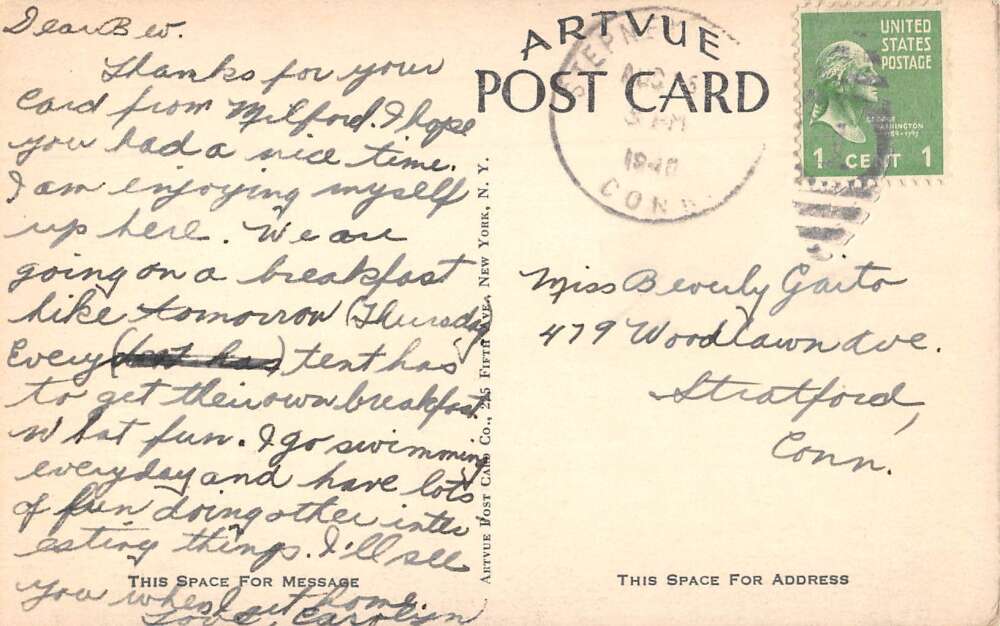 Dear Bev.
Thanks for your
card from Milford. I hope
you had a nice time.
I am enjoying myself
up here. We are
going on a breakfast
hike tomorrow (Thursday)
Every (tent has) tent has
to get their own breakfast.
What fun. I go swimming
everyday and have lots
of fun doing other inter
esting things. I'll see
you when I get home.
Love, Carolyn
THIS SPACE FOR MESSAGE
ARTVUE POST CARD CO., 225 FIFTH AVE., NEW YORK, N. Y.
ARTVUE
POST CARD
STEPNEY
AUG
PM
1940
CONN.
UNITED
STATES
POSTAGE
GEORGE
WASHINGTON
1789-1797
1 CENT 1
Miss Beverly Garto
479 Woodlawn Ave.
Stratford,
Conn.
THIS SPACE FOR ADDRESS